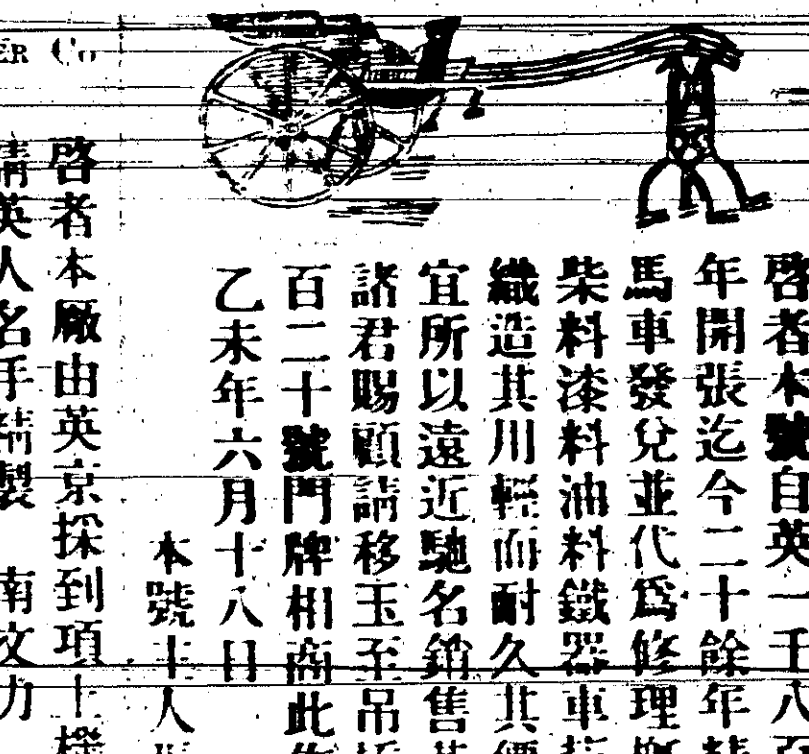 啓者本號自英一千八百
年開張迄今二十餘年
馬車發兌並代爲修理
柴料漆料油料鐵器車
織造其川輕而耐久其
宜所以遠近馳名銷售
諸君賜顧請移玉至吊
百二十號門牌相商此
乙未年六月十八日
本號主人
ER Co
啓者本廠由英京採到項上
請英人名手精製 南